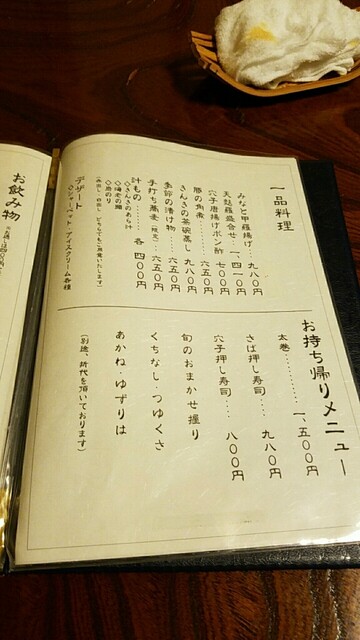 一品料理
みなと甲羅揚げ 九八〇円
天麩羅盛合せ 一、四一〇円
穴子唐揚げポン酢 七〇〇円
豚の角煮 六五〇円
きんきの茶碗蒸し 九八〇円
季節の漬け物 六五〇円
手打ち蕎麦(限定) 六五〇円
汁もの 各 四〇〇円
◇きんきのあら汁
◇海老の頭
◇岩のり
デザート
◇シャーベット アイスクリーム各種
お持ち帰りメニュー
太巻 一、五〇〇円
さば押し寿司 九八〇円
穴子押し寿司 八〇〇円
旬のおまかせ握り
くちなし・つゆくさ
あかね・ゆずりは
(別途、折代を頂いております)
お飲み物